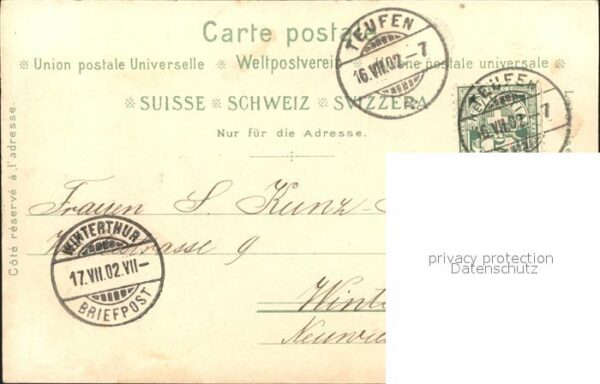 Carte postale
Union postale Universelle Weltpostverein Unione postale universale
SUISSE SCHWEIZ SVIZZERA
Nur für die Adresse.
Côté réservé à l'adresse.
TEUFEN
16.VII.02.-7
TEUFEN
16.VII.02.-7
5
Frauen S. Kunz-
9
WINTERTHUR
17.VII.02.VII-
BRIEFPOST
privacy protection
Datenschutz